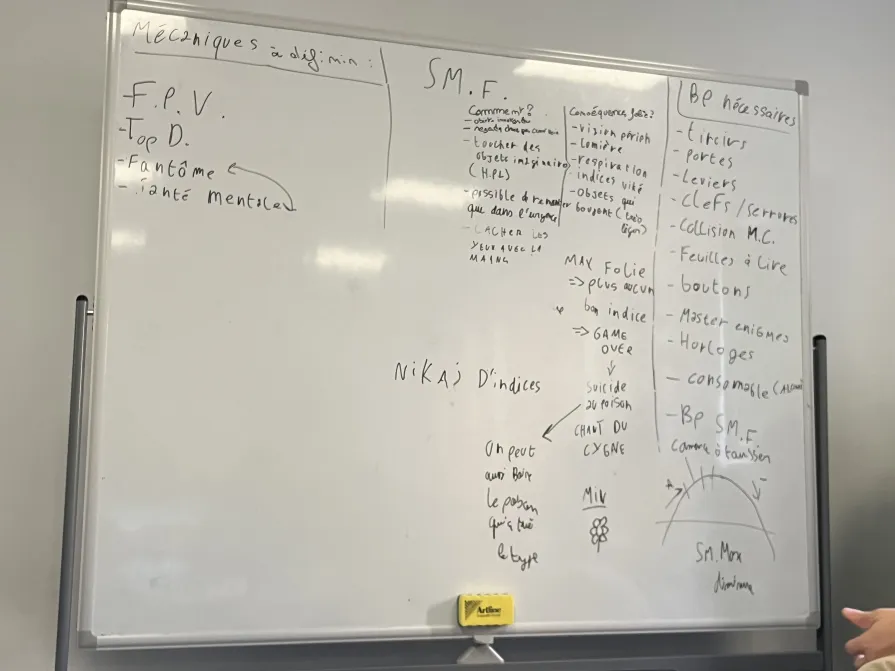 Mécaniques à
F.P.V.
-Top D.
-Fantôme
-Santé mentale
SM.F.
Comment?
-toucher des
objets imaginaires
(H.PL)
-possible de
que dans l'urgence
-CACHER LES
YEUX AVEC LA
MAINS
Conséquences
-vision périph
-Lumière
-respiration
indices
-Objets qui
bougent (très
léger)
MAX FOLIE
=> plus aucun
bon indice
=> GAME
OVER
suicide
au poison
CHANT DU
CYGNE
NiKAJ D'indices
On peut
aussi Boire
le poison
qui a tué
le type
BP nécessaires
-tiroirs
-Portes
-Leviers
-Clefs/serrures
-Collision M.C.
-Feuilles à Lire
-boutons
-Master enigmes
-Horloges
-consomable
-BP SM.F.
SM.Max
diminue
Artline